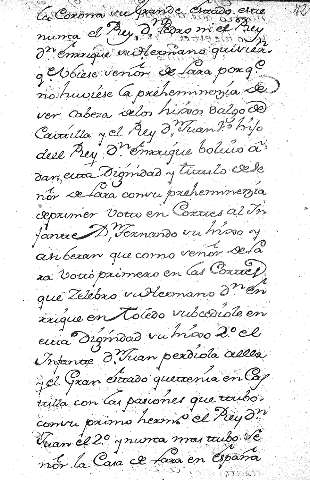 la Corona su Grande estado este
nunca el Rey Dn Pedro ni el Rey
Dn Enrrique su Hermano quisiern
qe. Ubiese señor de Lara porqe.
no huviese la preheminenzia de
ver cabeza delos hijos Dalgo de
Castilla y el Rey Dn Juan Pro hijo
deel Rey Dn Enrrique bolvio a
dar esta Dignidad y titulo de Se
ñor de Lara con su preheminenzia
de primer Voto en Cortes al In
fante Dn Fernando su hijo y
asi veran que como señor de La
ra Voto primero en las Cortes
que Zelebro su Hermano Dn En
rrique en Toledo subcediole en
esta Dignidad su hijo 2º el
Infante Dn Juan perdiola aella
y el Gran estado que tenia en Cas
tilla con las pasiones que tubo
con su primo hermo el Rey Dn
Juan el 2º y nunca mas tubo Se
ñor la Casa de Lara en españa